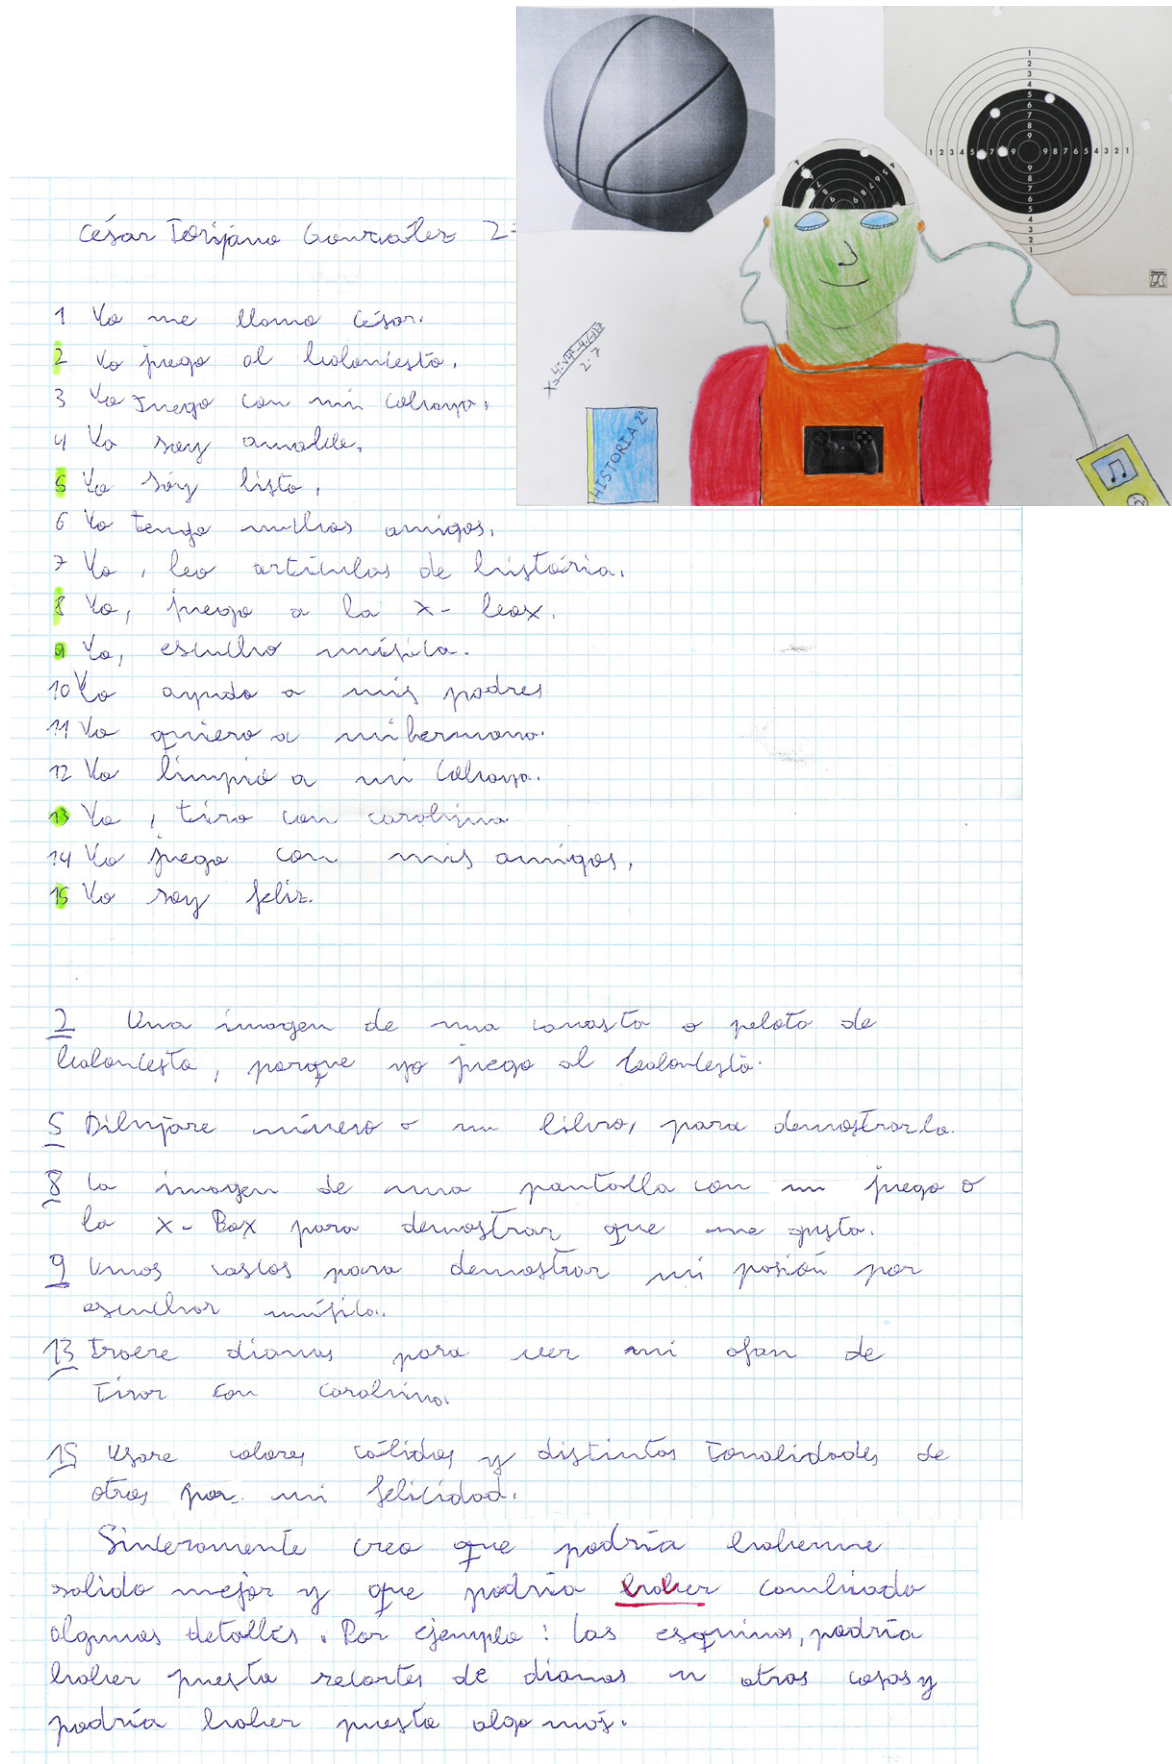 César Torijano González 2º
1 Yo me llamo César.
2 Yo juego al baloncesto.
3 Yo Juego con mi cobaya.
4 Yo soy amable.
5 Yo soy listo.
6 Yo tengo muchos amigos.
7 Yo, leo artículos de história.
8 Yo, juego a la x-box.
9 Yo, escucho música.
10 Yo ayudo a mis padres
11 Yo quiero a mi hermano.
12 Yo limpio a mi cobaya.
13 Yo, tiro con carabina
14 Yo juego con mis amigos.
15 Yo soy feliz.
2 Una imagen de una canasta o pelota de
baloncesto, porque yo juego al baloncesto.
5 Dibujare número o un libro, para demostrarlo.
8 La imagen de una pantalla con un juego o
la X-Box para demostrar que me gusta.
9 Unos cascos para demostrar mi pasión por
escuchar música.
13 Traere dianas para ver mi afan de
tirar con carabina.
15 Usare colores cálidos y distintas tonalidades de
otros por mi felicidad.
Sinceramente creo que podría haberme
salido mejor y que podría haber cambiado
algunos detalles. Por ejemplo: las esquinas, podría
haber puesto recortes de dianas u otras cosas y
podría haber puesto algo más.
HISTORIA 2º
1 2 3 4 5 6 7 8 9
1 2 3 4 5 7 9 9 8 7 6 5 4 3 2 1
9 8 7 6 5 4 3 2 1